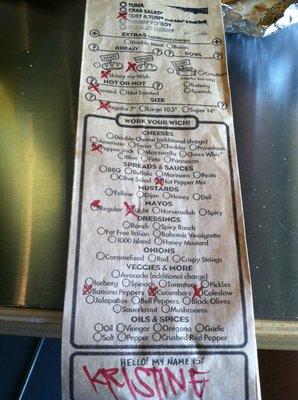 TUNA
CRAB SALAD*
SURF & TURF*
EXTRAS (additional charge)
Double Meat Bacon
BREAD BOWL
Skinny my Wich
HOT OR NOT?
Toasted Not Toasted
Spinach
SIZE
Regular 7" Large 10.5" Super 14"
WORK YOUR WICH!
CHEESES
Double Cheese (additional charge)
American Swiss Cheddar Provolone
Pepper Jack Mozzarella Cheez Whiz®
Bleu Feta Parmesan
SPREADS & SAUCES
BBQ Buffalo Marinara Pesto
Olive Salad Hot Pepper Mix
MUSTARDS
Yellow Dijon Honey Deli
MAYOS
Regular Light Horseradish Spicy
DRESSINGS
Ranch Spicy Ranch
Fat Free Italian Balsamic Vinaigrette
1000 Island Honey Mustard
ONIONS
Caramelized Red Crispy Strings
VEGGIES & MORE
Avocado (additional charge)
Iceberg Spinach Tomatoes Pickles
Banana Peppers Cucumbers Coleslaw
Jalapeños Bell Peppers Black Olives
Sauerkraut Mushrooms
OILS & SPICES
Oil Vinegar Oregano Garlic
Salt Pepper Crushed Red Pepper
HELLO! MY NAME IS:
KRISTINE